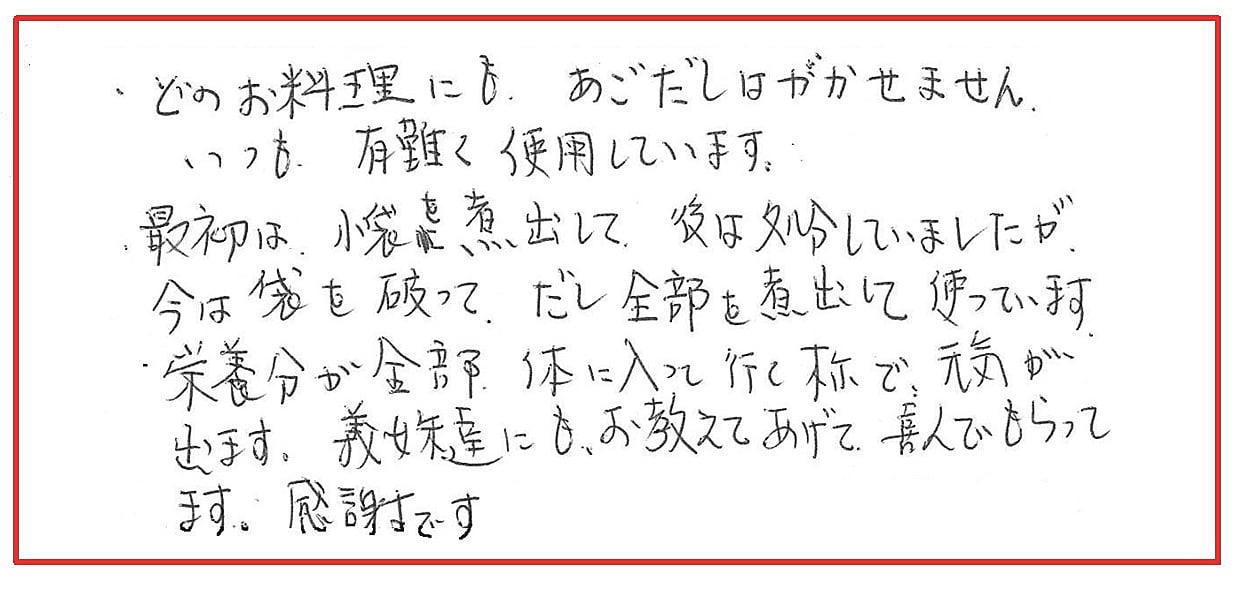 ・どのお料理にも、あごだしはがかせません。
いつも、有難く使用しています。
・最初は、小袋を煮出して、後は処分していましたが、
今は袋を破って、だし全部を煮出して使っています。
・栄養分が全部、体に入って行く様で、元気が
出ます。義妹達にも、お教えてあげて、喜んでもらって
ます。感謝です